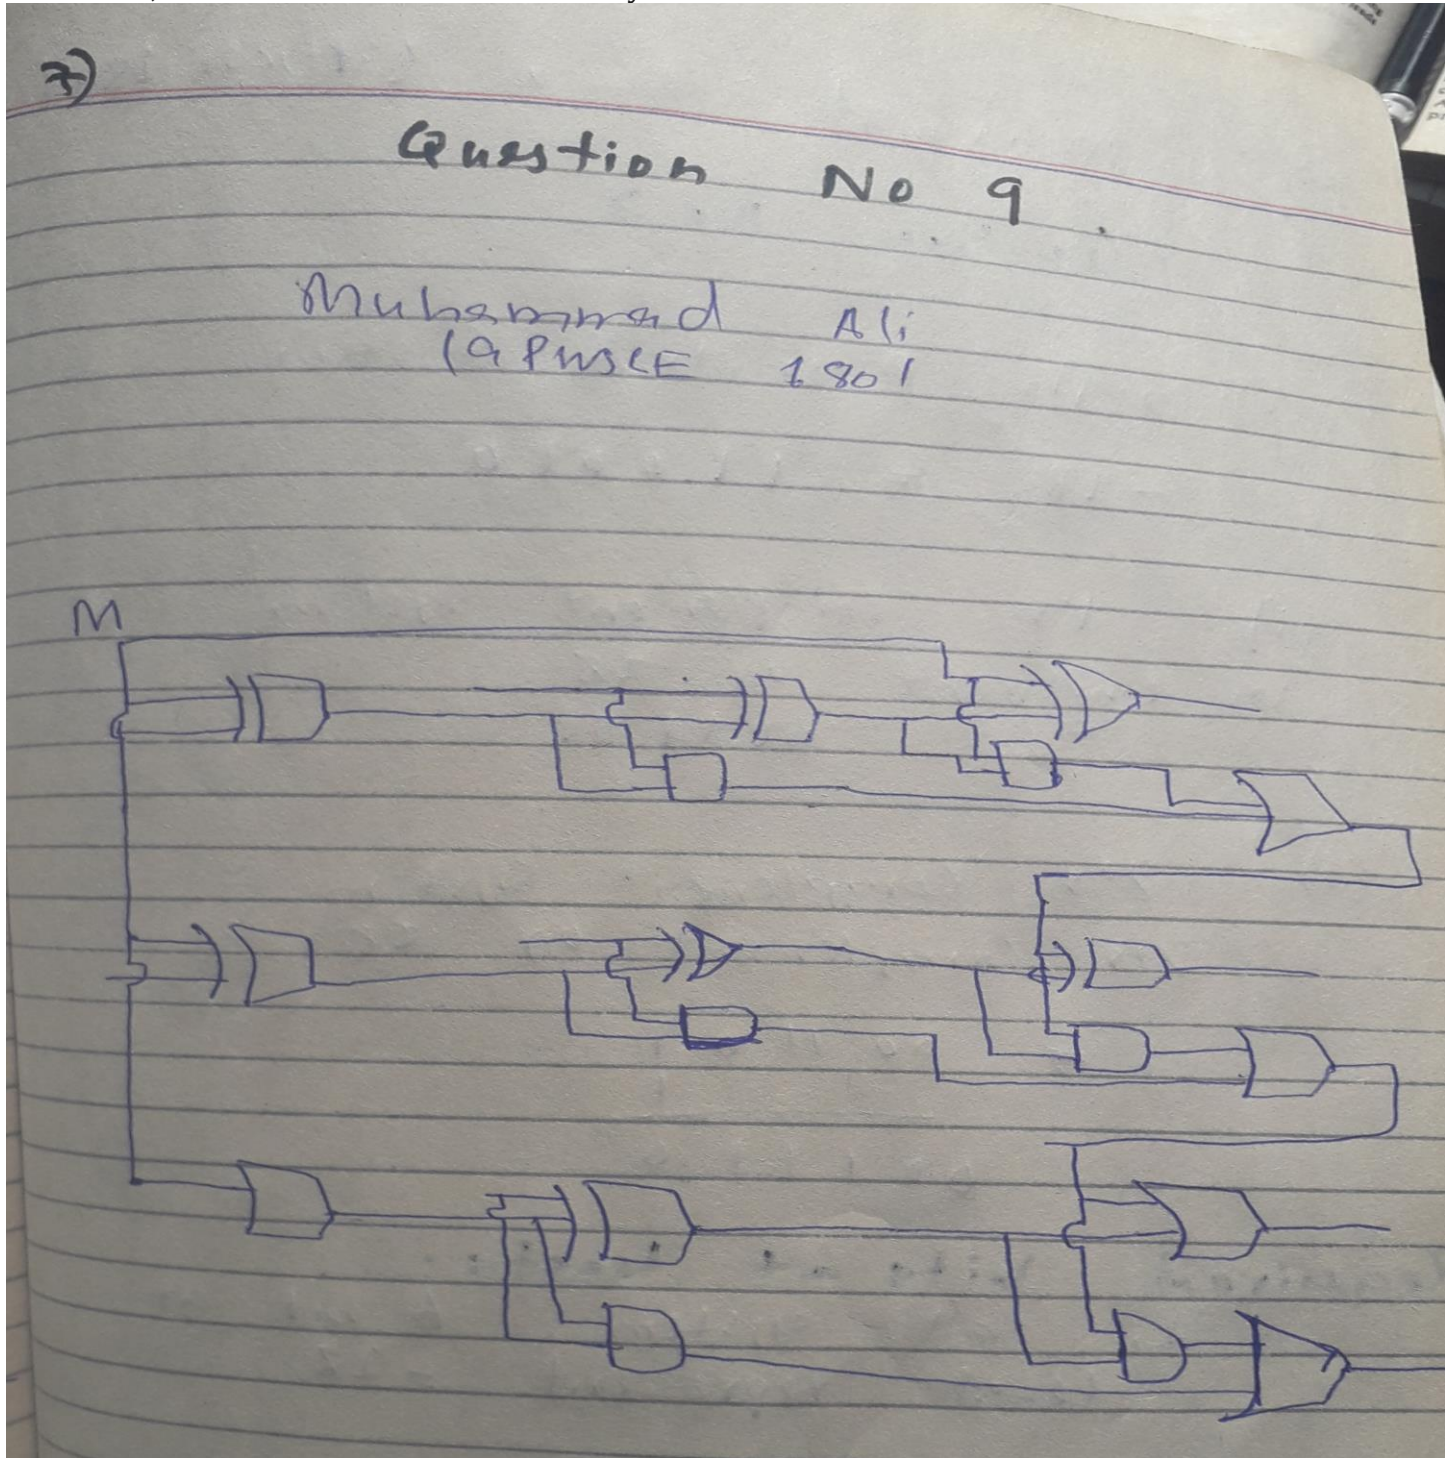 7)
Question No 9.
Muhammad Ali
19PWSCE 1801
M